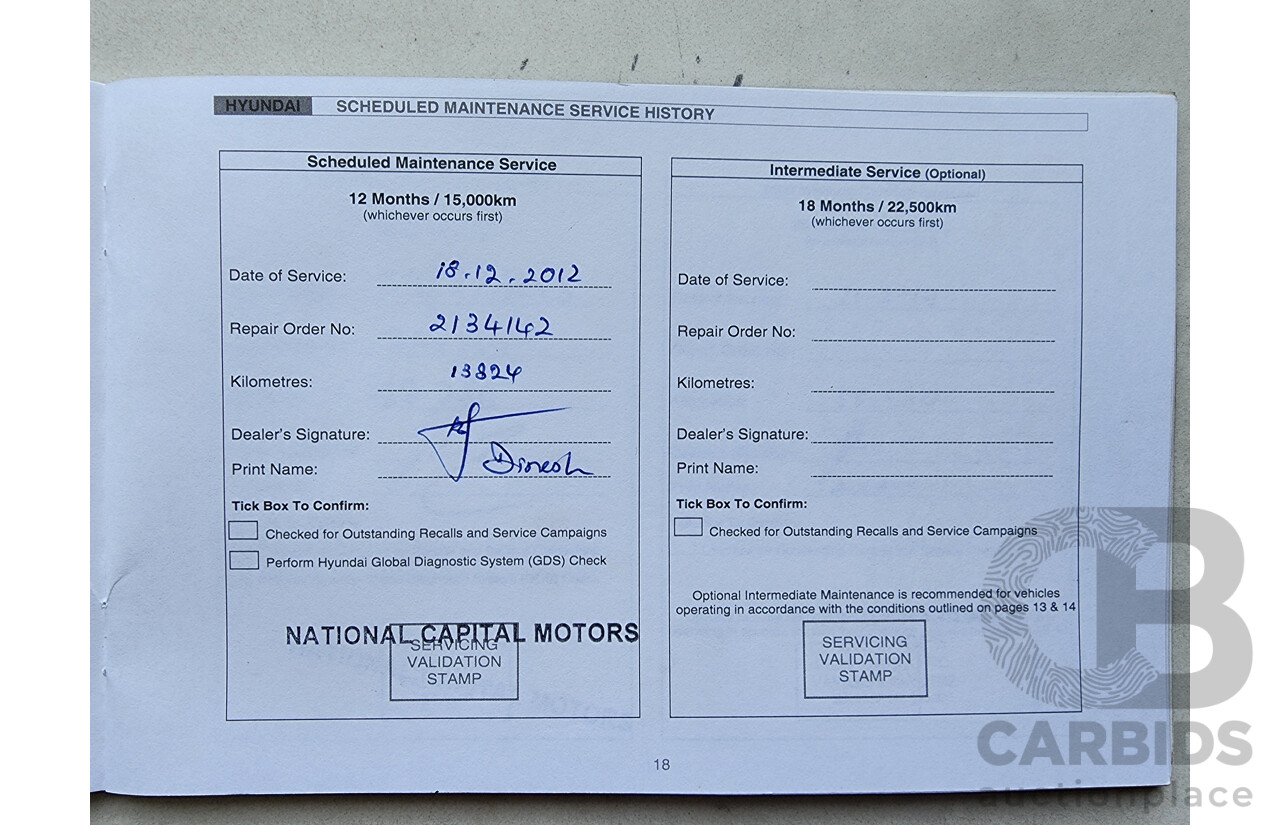 HYUNDAI SCHEDULED MAINTENANCE SERVICE HISTORY
Scheduled Maintenance Service
12 Months / 15,000km
(whichever occurs first)
Date of Service: 18.12.2012
Repair Order No: 2134142
Kilometres: 13824
Dealer's Signature:
Print Name: Dinesh
Tick Box To Confirm:
Checked for Outstanding Recalls and Service Campaigns
Perform Hyundai Global Diagnostic System (GDS) Check
NATIONAL CAPITAL MOTORS
SERVICING
VALIDATION
STAMP
Intermediate Service (Optional)
18 Months / 22,500km
(whichever occurs first)
Date of Service:
Repair Order No:
Kilometres:
Dealer's Signature:
Print Name:
Tick Box To Confirm:
Checked for Outstanding Recalls and Service Campaigns
Optional Intermediate Maintenance is recommended for vehicles
operating in accordance with the conditions outlined on pages 13 & 14
SERVICING
VALIDATION
STAMP
18
CB
CARBIDS
auctionplace